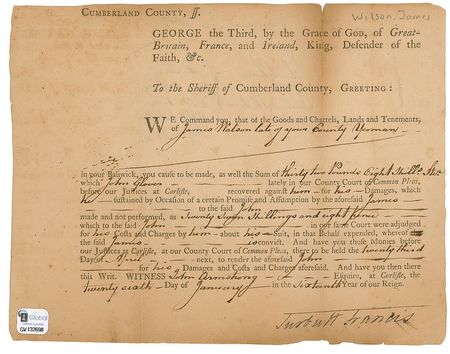 Wilson, James
CUMBERLAND COUNTY, ſſ.
GEORGE the Third, by the Grace of GOD, of Great-
Britain, France, and Ireland, King, Defender of the
Faith, &c.
To the Sheriff of Cumberland County, GREETING:
WE Command you, that of the Goods and Chattels, Lands and Tenements,
of James Watson late of your County Yeoman
in your Bailiwick, you cauſe to be made, as well the Sum of thirty two Pounds Eight Shills
which John Glover lately in our County Court of Common Pleas,
before our Juſtices at Carliſle, recovered againſt him for his Damages, which
he ſuſtained by Occaſion of a certain Promiſe and Aſſumption by the aforeſaid James
to the ſaid John
made and not performed, as Twenty Seven Shillings and eight Pence
which to the ſaid John in our ſame Court were adjudged
for his Coſts and Charges by him about his Suit, in that Behalf expended, whereof
the ſaid James is convict. And have you thoſe Monies before
our Juſtices at Carliſle, at our County Court of Common Pleas, there to be held the twenty third
Day of April next, to render the aforeſaid John
for his Damages and Coſts and Charges aforeſaid. And have you then there
this Writ. WITNESS John Armstrong Eſquire, at Carliſle, the
twenty sixth Day of January in the Sixteenth Year of our Reign.
Turbutt Francis
Global
GV 132698